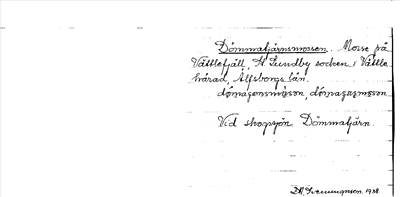 Dömmatjärnsmosen. Mosse på
Vättlefjäll, St Lundby socken i Vättle
härad, Älfsborgs län.
dömagensmåson, dömagesmson
Vid skogssjön Dömmatjärn.
1938